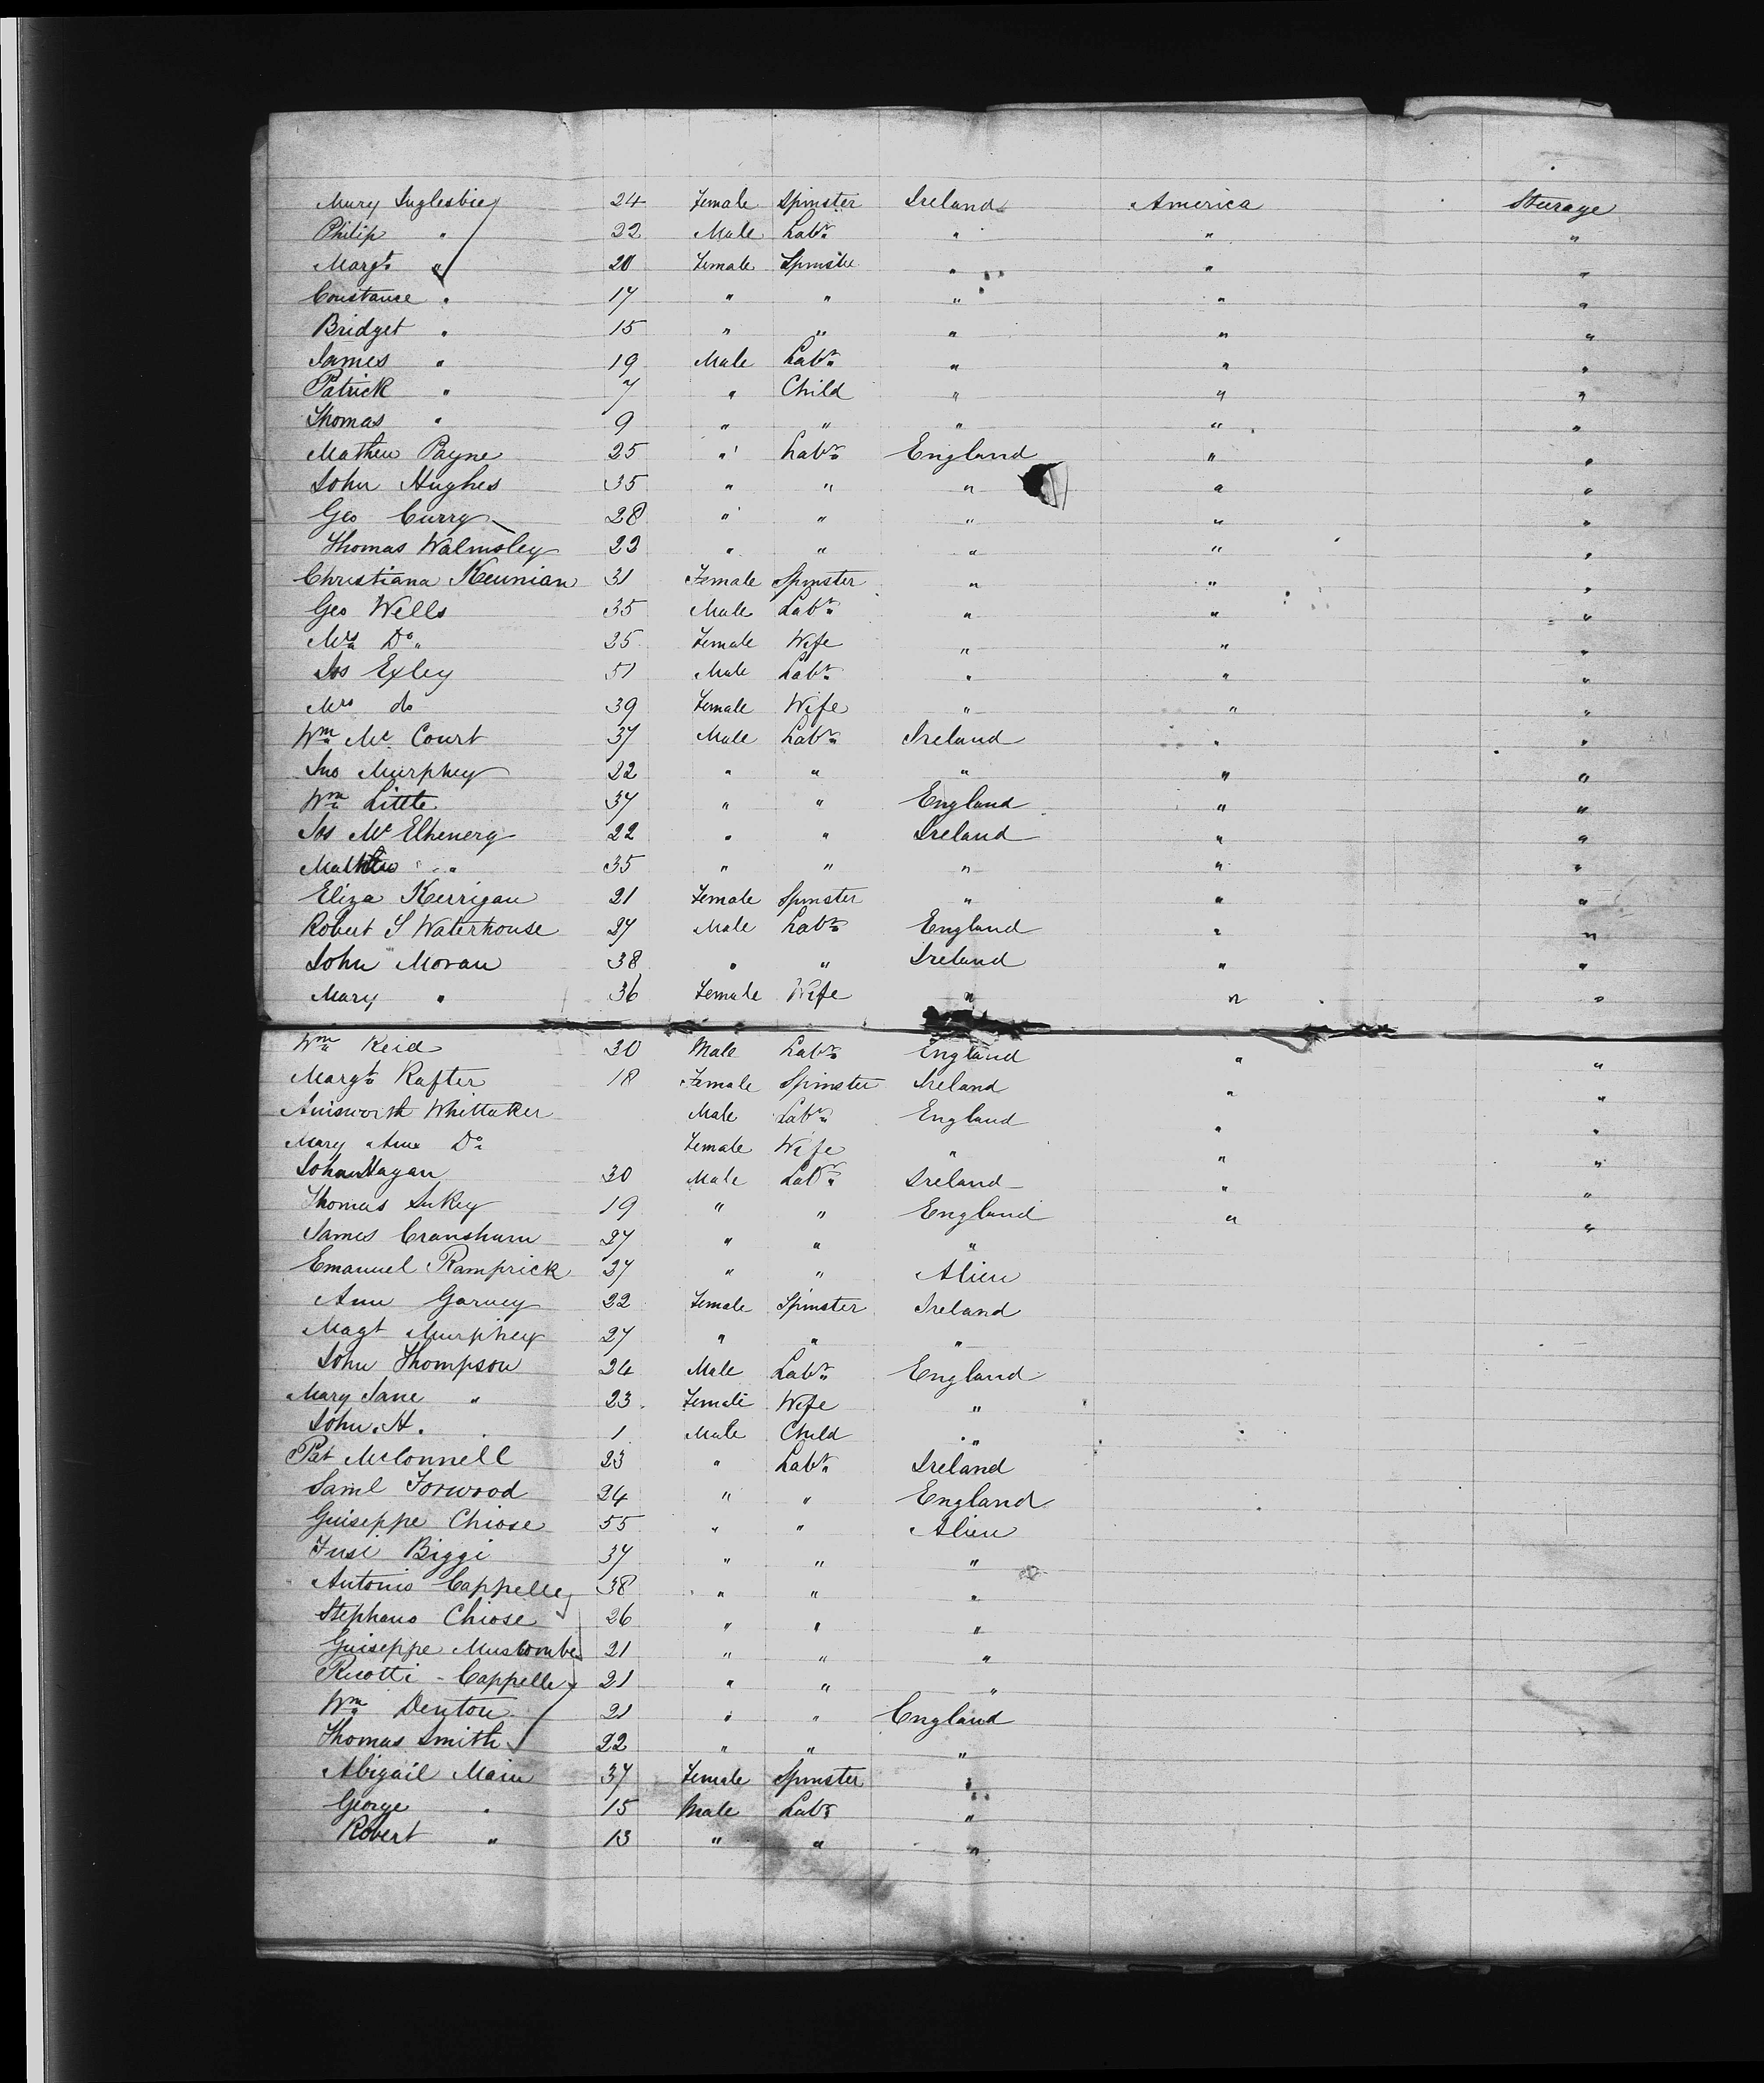 Mary Inglesbie 24 Female Spinster Ireland America Steerage
Philip " 22 Male Labr " " "
Margt " 20 Female Spinster " " "
Constance " 17 " " " " "
Bridget " 15 " " " " "
James " 19 Male Labr " " "
Patrick " 7 " Child " " "
Thomas " 9 " " " " "
Mathew Payne 25 " Labr England " "
John Hughes 35 " " " " "
Geo Curry 28 " " " " "
Thomas Walmsley 23 " " " " "
Christiana Keunian 31 Female Spinster " " "
Geo Wells 35 Male Labr " " "
Mrs Do " 25 Female Wife " " "
Jos Exley 51 Male Labr " " "
Mrs do 39 Female Wife " " "
Wm Mc Court 37 Male Labr Ireland " "
Jno Murphey 22 " " " " "
Wm Little 37 " " England " "
Jos Mc Elhenerg 22 " " Ireland " "
Mathew " 35 " " " " "
Eliza Kerrigan 21 Female Spinster " " "
Robert S Waterhouse 27 Male Labr England " "
John Moran 38 " " Ireland " "
Mary " 36 Female Wife " " "
Wm Reid 30 Male Labr England " "
Margt Rafter 18 Female Spinster Ireland " "
Ainsworth Whittaker Male Labr England " "
Mary Ann Do Female Wife " " "
John Hagan 30 Male Labr Ireland " "
Thomas 19 " " England " "
James Cranshum 27 " " "
Emanuel Ramprick 37 " " Alien
Ann Garvey 22 Female Spinster Ireland
Magt Murphey 27 " " "
John Thompson 24 Male Labr England
Mary Jane " 23 Female Wife "
John. H. 1 Male Child "
Pat McConnell 23 " Labr Ireland
Saml Forwood 24 " " England
Guiseppe Chiose 55 " " Alien
Fusi Biggi 37 " " "
Antonio Cappelle 38 " " "
Stephano Chiose 26 " " "
Guiseppe Muscombe 21 " " "
Ricotti - Cappelle 21 " " "
Wm Denton 21 " " England
Thomas Smith 22 " " "
Abigail Main 37 Female Spinster "
George " 15 Male Labr "
Robert " 13 " " "